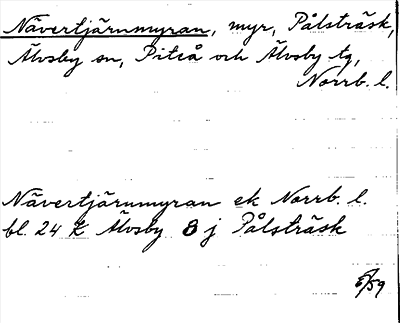 Nävertjärnmyran, myr, Pålsträsk,
Älvsby sn, Piteå och Älvsby tg,
Norrb. l.
Nävertjärnmyran ek Norrb. l.
bl. 24 K Älvsby 8 j Pålsträsk
/59